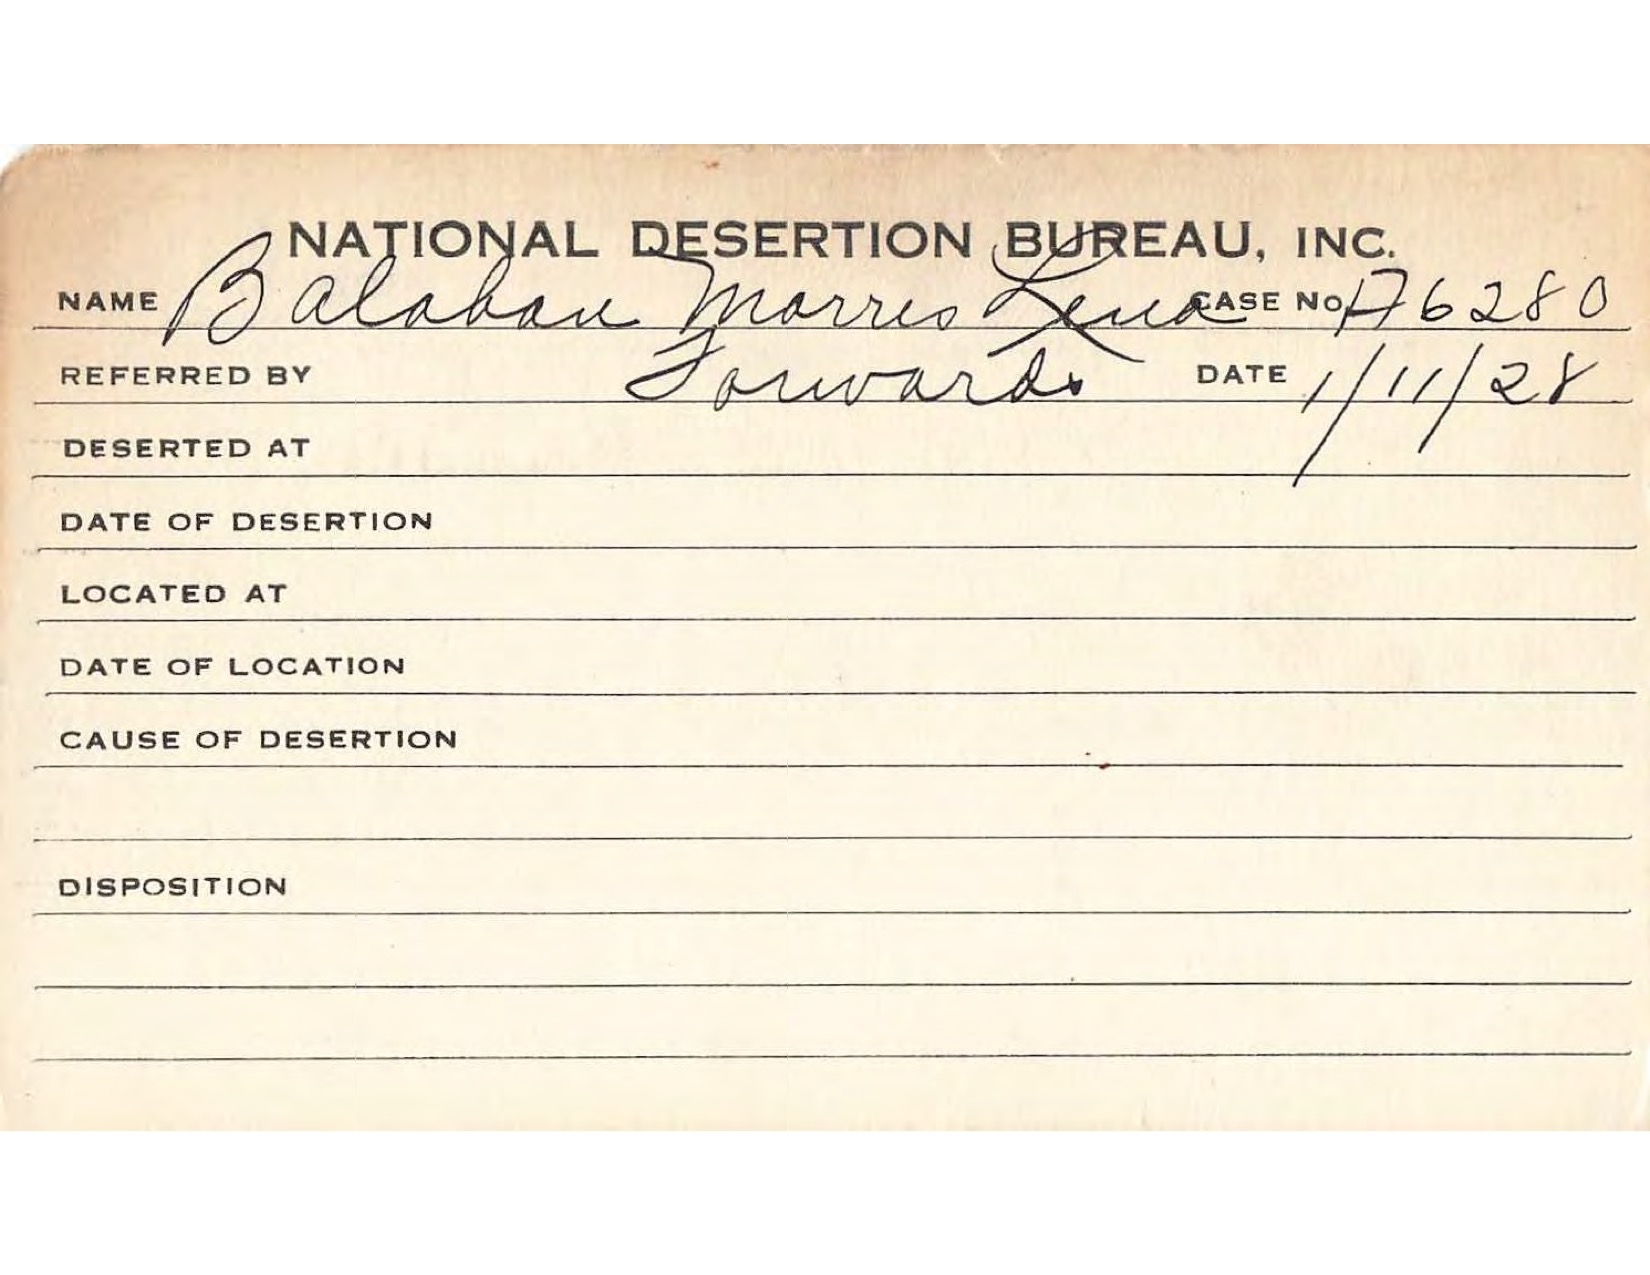 NATIONAL DESERTION BUREAU, INC.
NAME Balaban Morris Lena CASE No. A6280
REFERRED BY Forwards DATE 1/11/28
DESERTED AT
DATE OF DESERTION
LOCATED AT
DATE OF LOCATION
CAUSE OF DESERTION
DISPOSITION